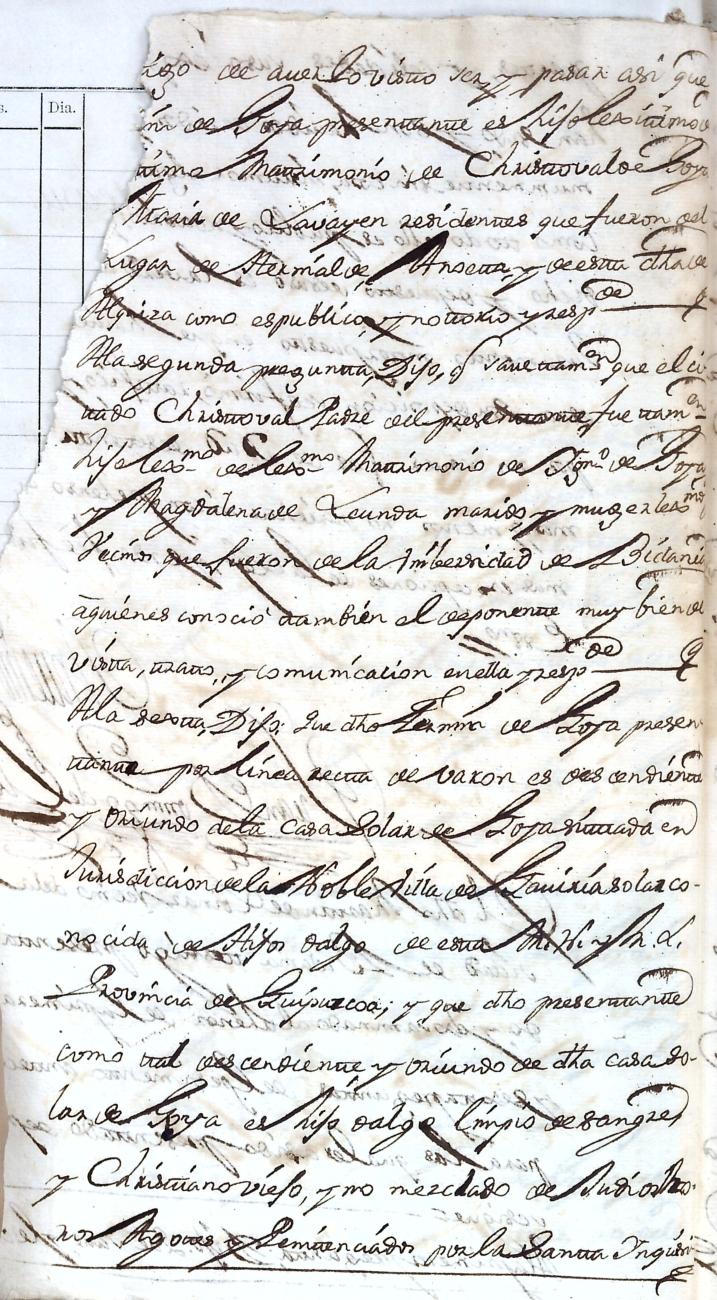 s. Dia.
tigo de averlo visto ser, y pasar asi que
de Goya presenttantte es hijo lexittimo
ttimo Mattrimonio de Christtoval de Goya
Maria de Lavayen residenttes que fueron del
Lugar de Hermal de Ansotta y de estta dha de
Algiza como es publico, y nottorio y resp.de
A la segunda preguntta, Dijo, q save ttamn que el ci
ttado Christtoval Padre del presenttantte fue ttamn
hijo lexmo de lexmo Mattrimonio de Ygno de Goya
y Magdalena de Leunda marido, y muger lexmos
Vecinos que fueron de la Vnibersidad de Bidania
a quienes conocio ttambien el deponentte muy bien de
vistta, tratto, y comunicacion en ella y resp.de
A la sextta, Dijo: Que dho Fermin de Goya presen
ttantte por linea rectta de varon es descendientte
y oriundo de la Casa Solar de Goya sittuada en
Jurisdiccion de la Noble Villa de Gaviria solar co-
nocida de Hijos dalgo de estta M. N. y M. L.
Provincia de Guipuzcoa; y que dho presenttantte
como ttal descendientte y oriundo de dha casa so-
lar de Goya es hijo dalgo limpio de sangre
y Christtiano viejo, y no mezclado de Judios Mo-
ros Agottes y Penittenciados por la Santta Inquisi